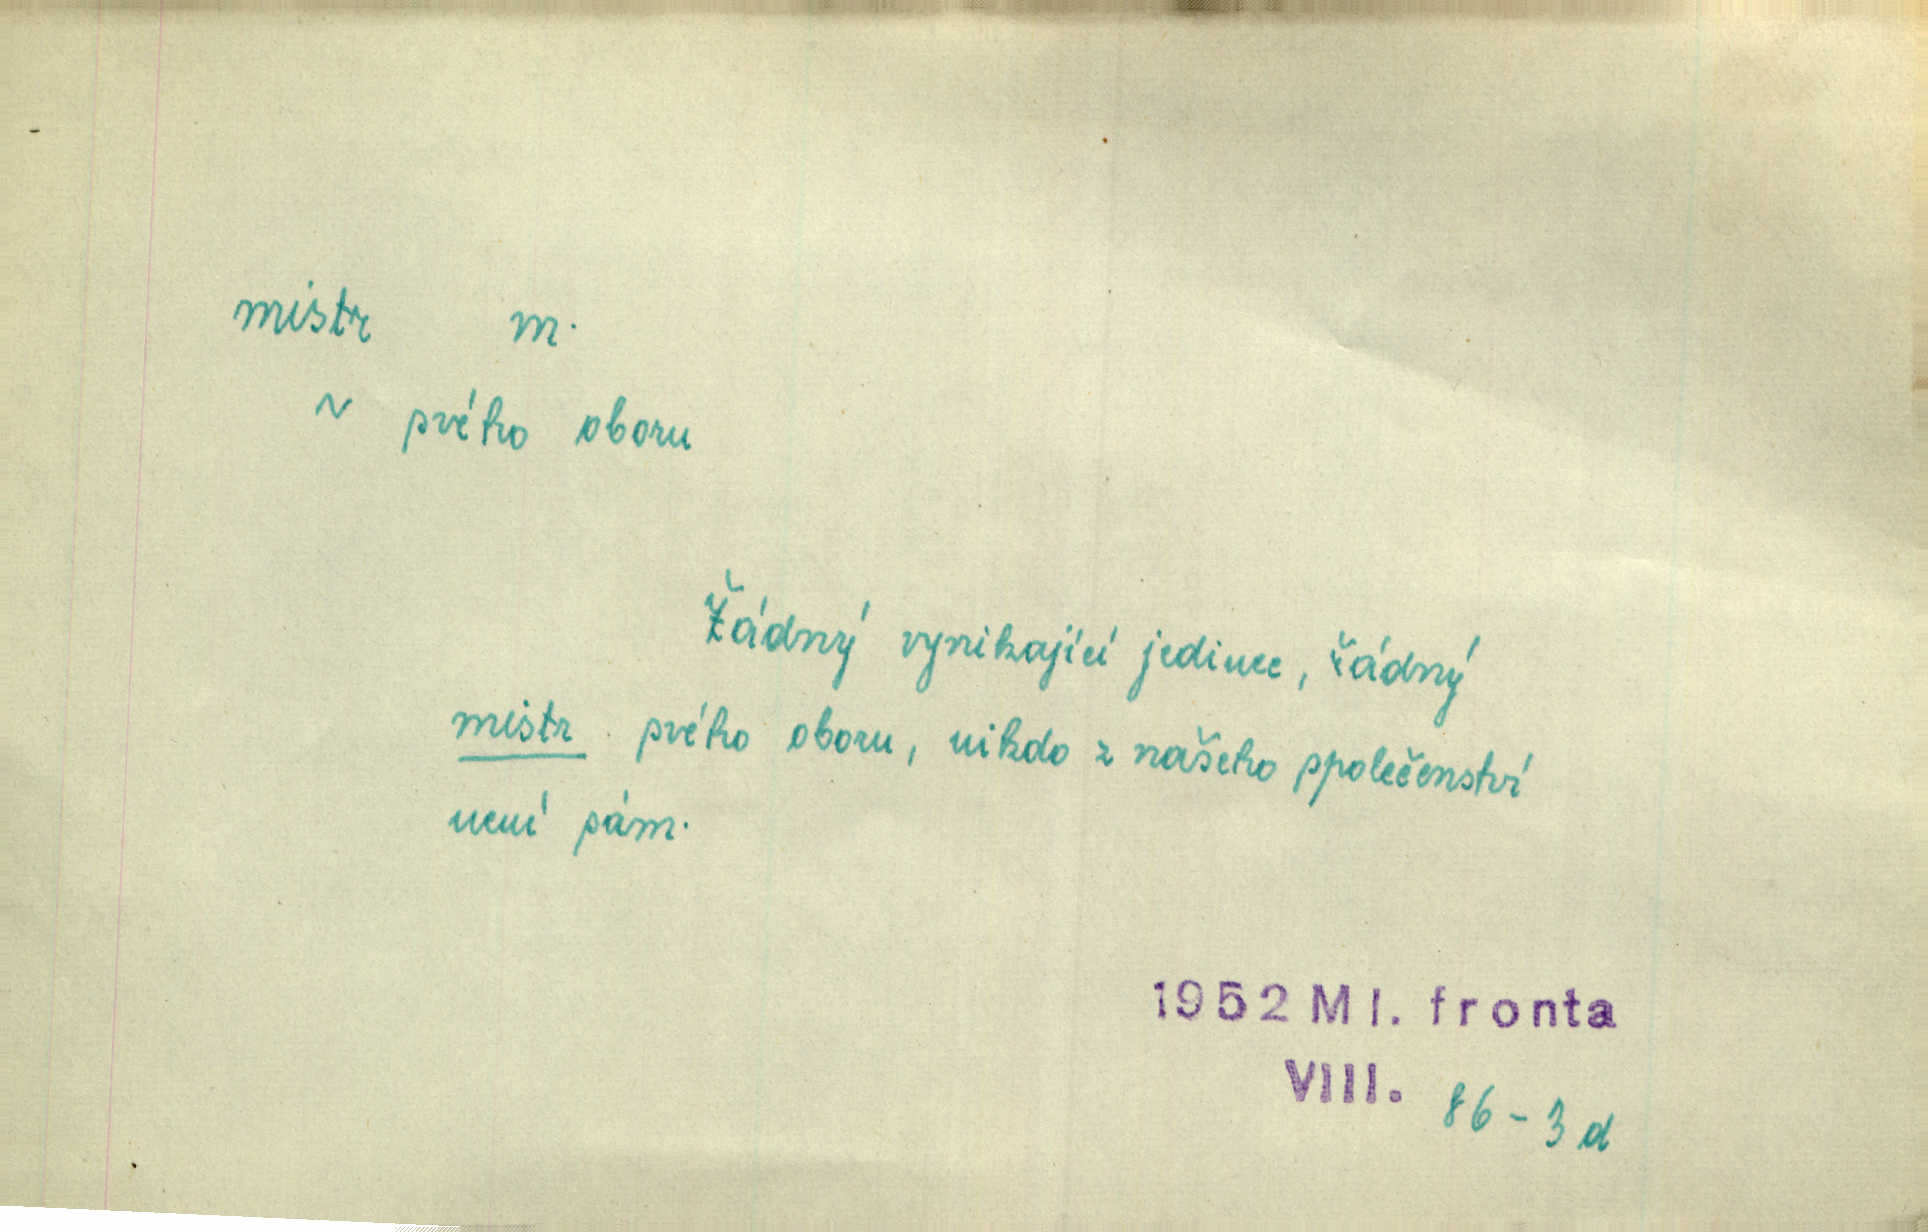 mistr m.
~ svého oboru
Žádný vynikající jedinec, žádný
mistr svého oboru, nikdo z našeho společenství
není sám.
1952 Ml. fronta
VIII. 86 - 3 d